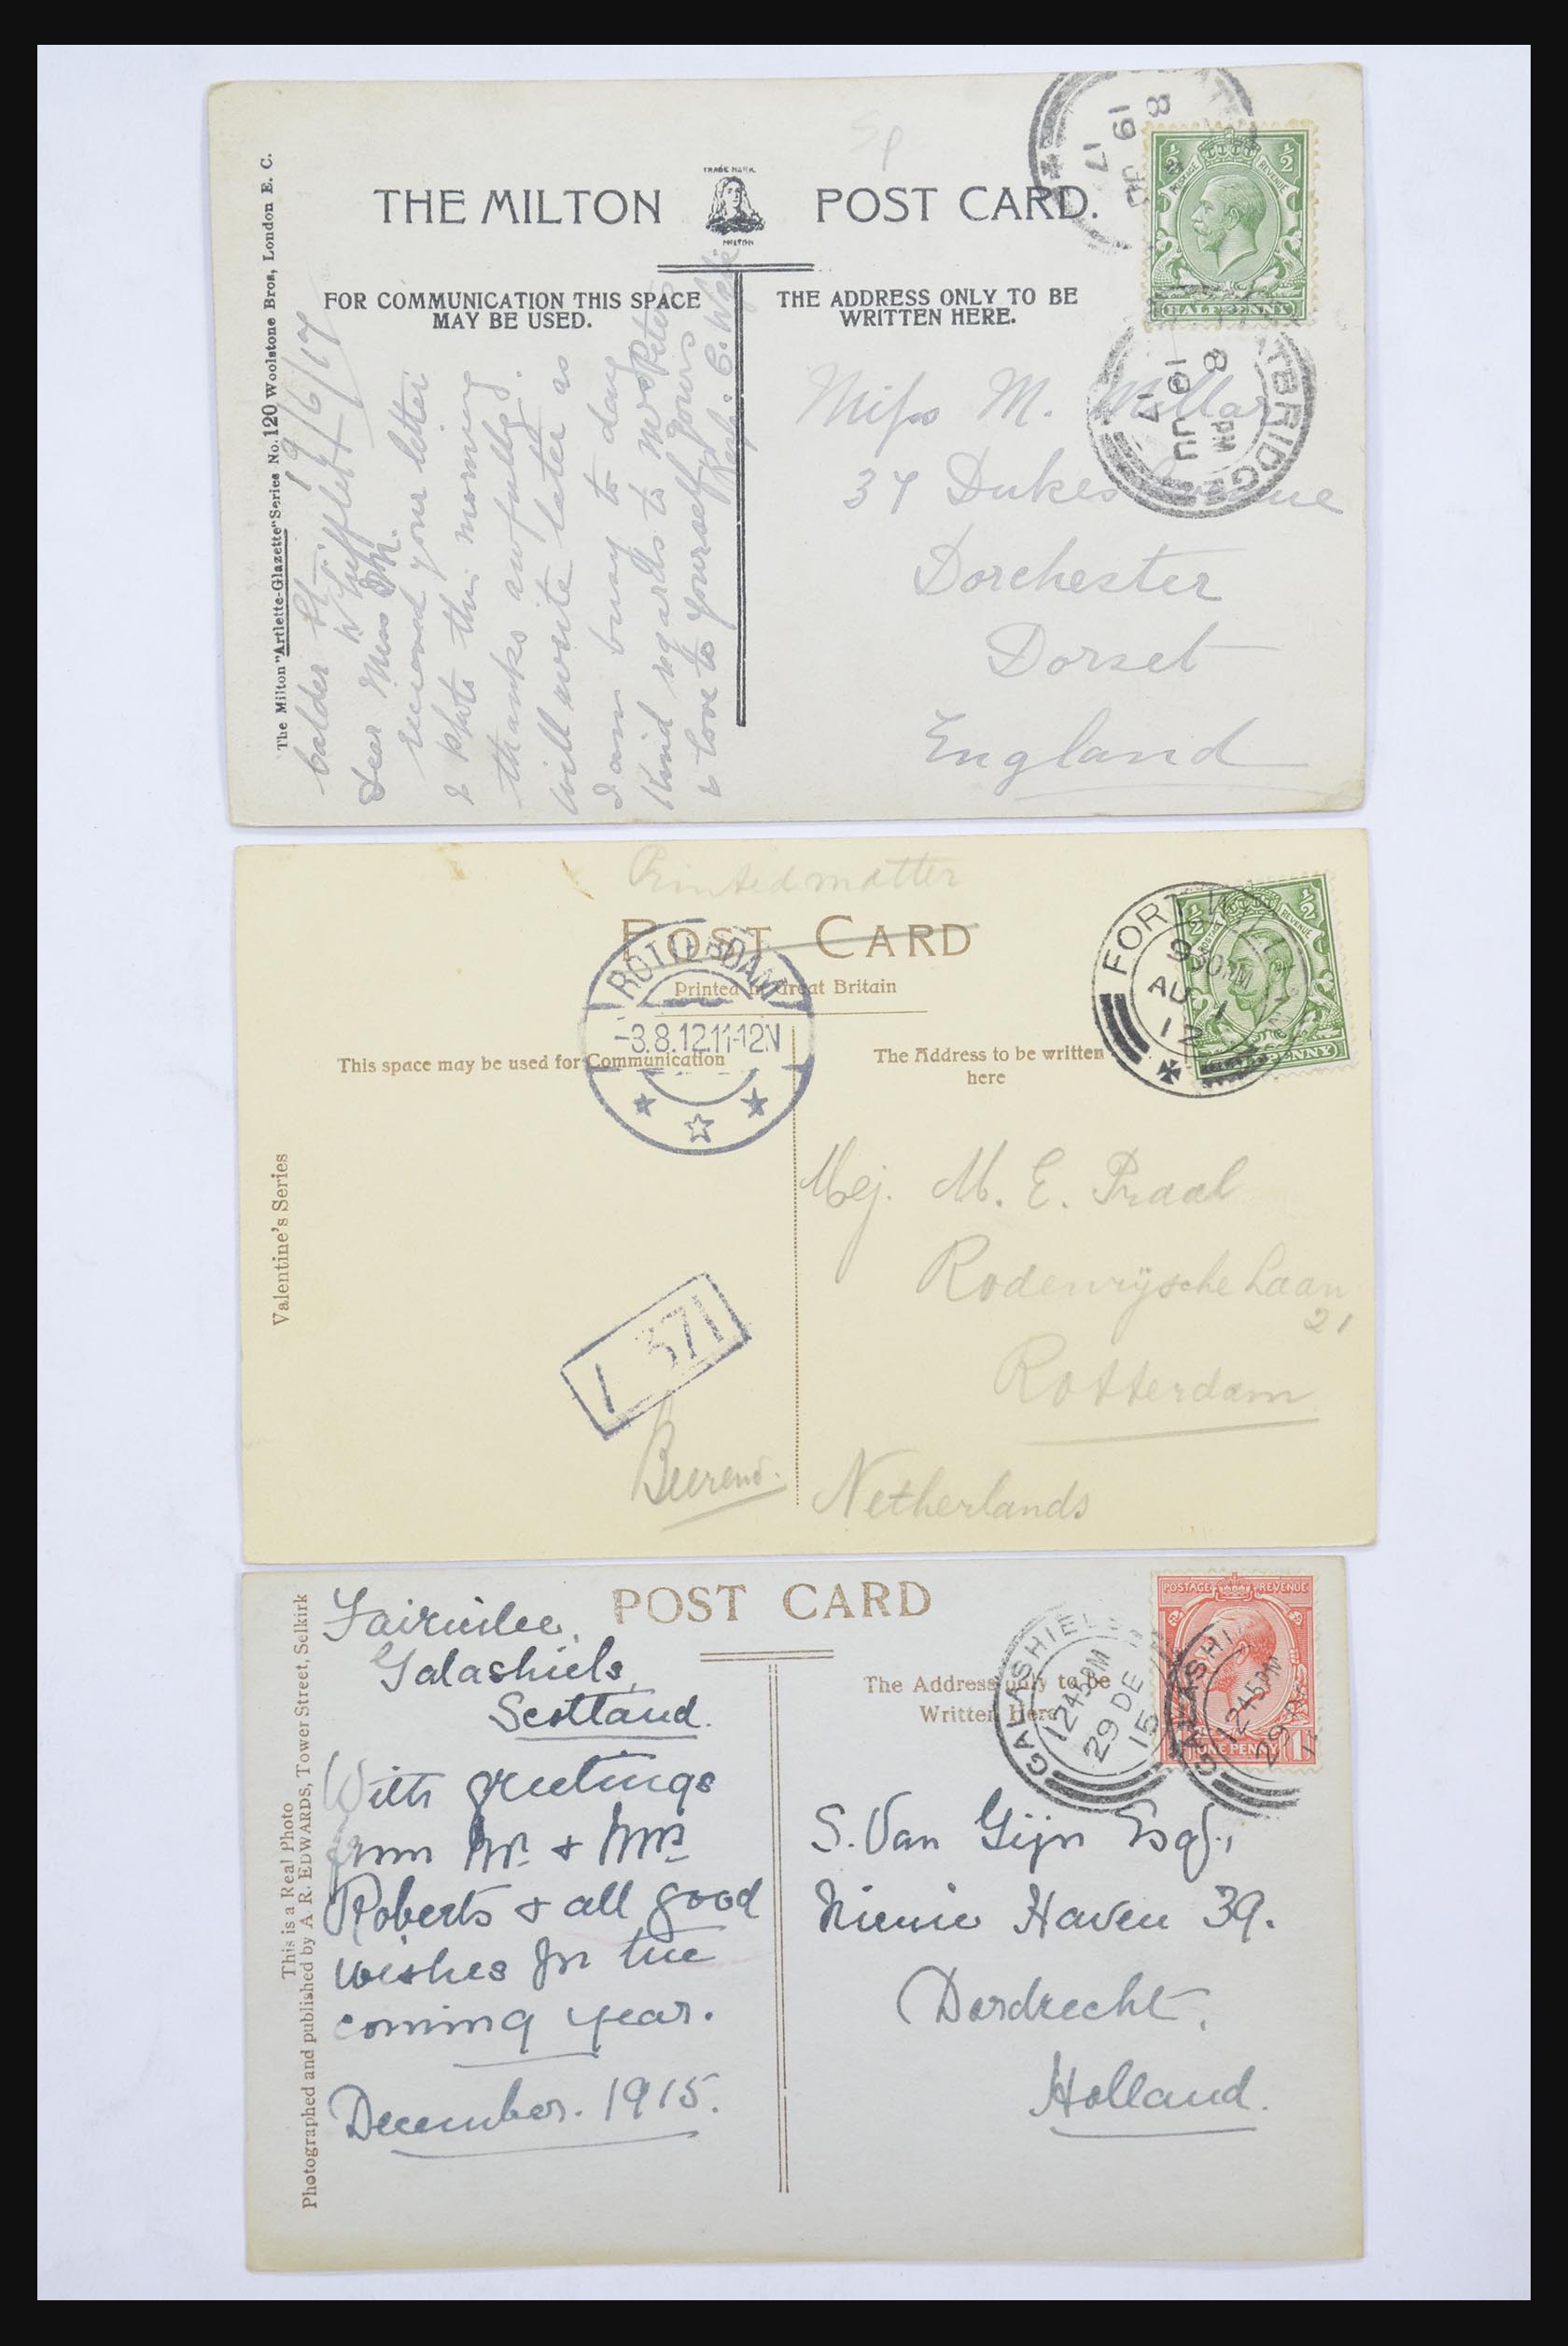 The Milton "Artlette-Glazette" Series No. 120 Woolstone Bros, London E. C.
THE MILTON
TRADE MARK
MILTON
POST CARD.
FOR COMMUNICATION THIS SPACE
MAY BE USED.
THE ADDRESS ONLY TO BE
WRITTEN HERE.
POSTAGE REVENUE
½ ½
HALFPENNY
8 PM
19 JU
17
TBRIDGE
Calder St.
19/6/17
Dear Miss M.
received your letter
& photo this morning
thanks awfully.
will write later as
I am busy to day
Kind regards to Mrs Peters
& love to yourself yours
Miss M. Millar
37 Dukes Avenue
Dorchester
Dorset
England
Printed matter
POST CARD
Printed in Great Britain
This space may be used for Communication
The Address to be written
here
Valentine's Series
ROTTERDAM
-3.8.12.11-12N
FORT WILLIAM
930PM
AU 1
12
POSTAGE REVENUE
½ ½
HALFPENNY
1 371
Mej. M. E. Praal
Rodenrijsche Laan
21
Rotterdam
Netherlands
Beerend.
POST CARD
This is a Real Photo
Photographed and published by A. R. EDWARDS, Tower Street, Selkirk
The Address only to be
Written Here
POSTAGE REVENUE
1 ONE PENNY 1
GALASHIELS
1245PM
29 DE
15
GALASHI
1245PM
29
Fairnilee,
Galashiels,
Scotland.
With greetings
from Mr. & Mrs.
Roberts & all good
wishes for the
coming year.
December. 1915.
S. Van Gijn Esq.,
Nieuwe Haven 39.
Dordrecht,
Holland.